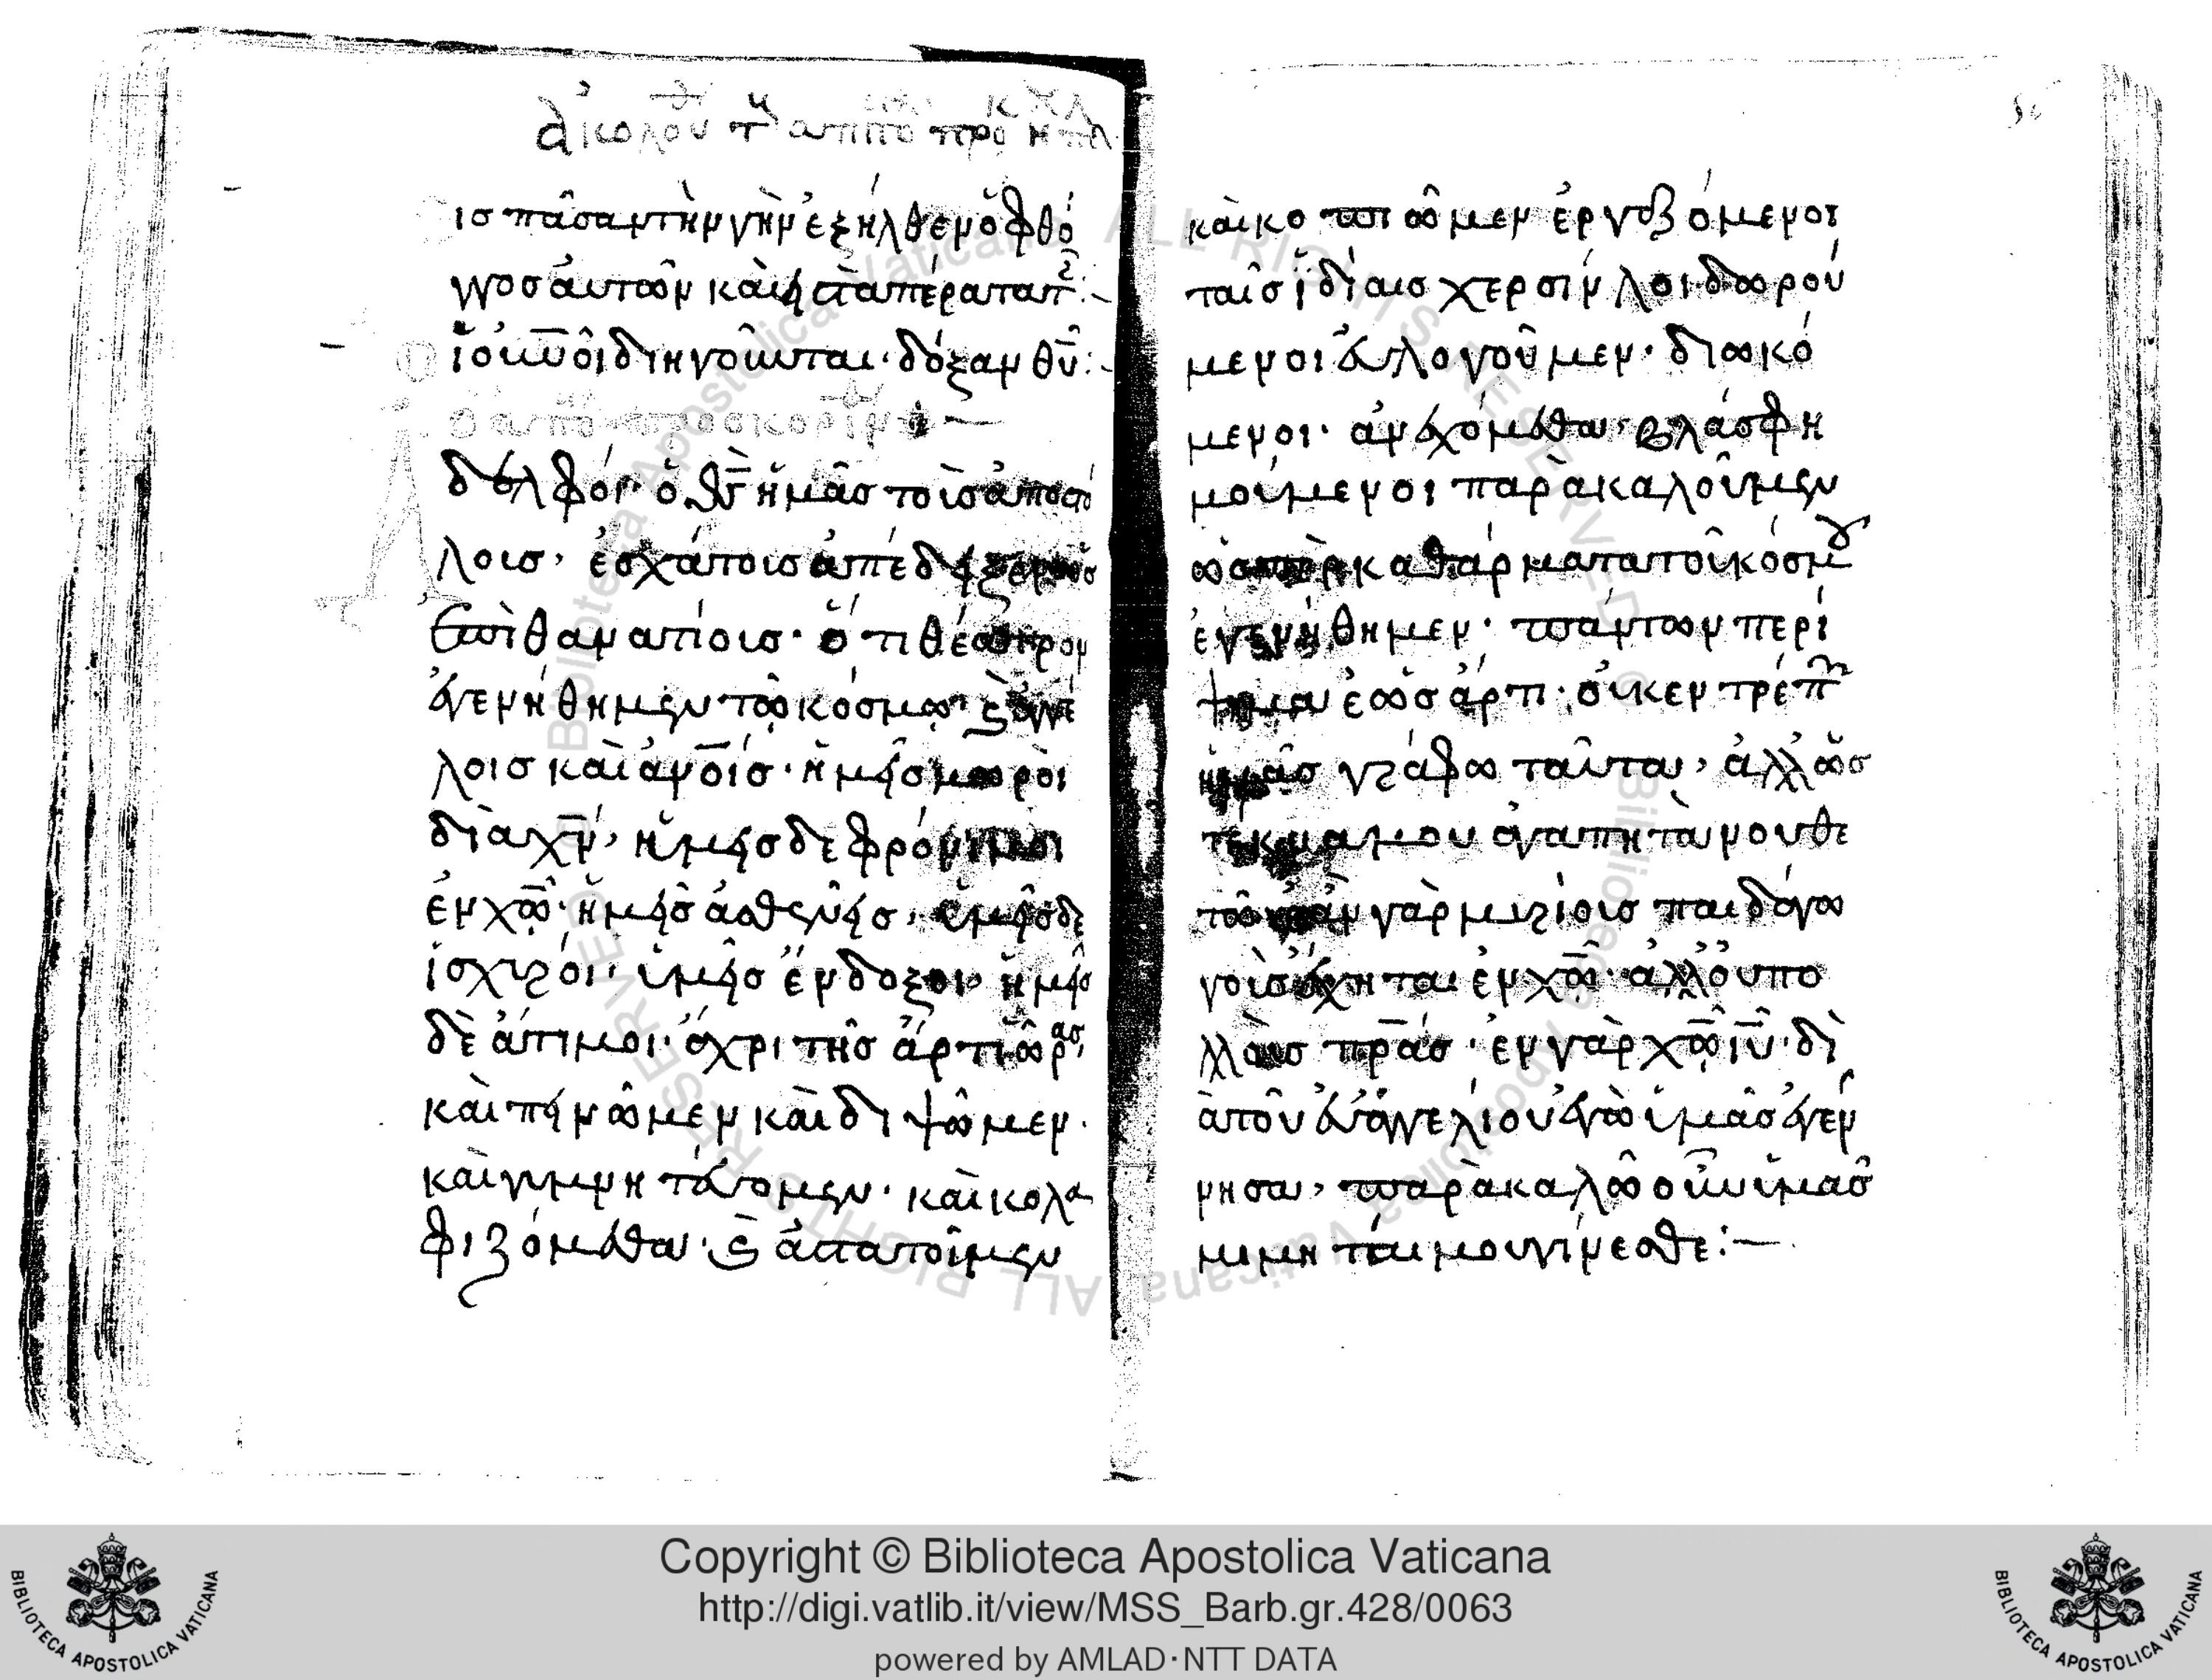 ισ πᾶσαν τὴν γὴν ἐξήλθεν ὁ φθό
γγοσ αὐτῶν καὶ εἰσ τὰ πέρατα τ
ϊ οὐνοῖ διηγοῦνται· δόξαν θῦ:
δελφοί· ὁ θσ ἡμᾶσ τοὶσ ἀποσό
λοισ, ἐσχάτοισ ἀπέδειξεν
ἐπὶ θανατίοισ· ὅτι θέατρον
ἐγενήθημεν τῶ κόσμω, καὶ ἀγγέ
λοισ καὶ ἀνοίσ· ἡμεῖσ μωρὸι
διὰ χν, ἡμεῖσ δε φρόνιμοι
ἐν χῶ· ἡμεῖσ ἀσθενεῖσ, ὑμεῖσ δε
ἰσχυρόι· ὑμεῖσ ἔνδοξοι, ἡμεῖσ
δὲ ἄτιμοι· ἄχρι τῆσ ἄρτι ὥρασ,
καὶ πεινῶμεν καὶ διψῶμεν·
καὶ γυμνητεύομεν· καὶ κολα
φιζόμεθα· καὶ ἀστατοῦμεν
καὶ κοπιῶμεν ἐργαζόμενοι
ταῖσ ἰδίαισ χερσίν λοιδωρού
μενοι εὐλογοῦμεν· διωκό
μενοι· ἀνεχόμεθα, βλασφη
μούμενοι παρὰκαλοῦμεν
ὡσπερ καθάρματα τοῦ κόσμου
ἐγενήθημεν· πάντων περί
ψημα ἑὼσ ἄρτι· οὐκ ἐντρέπων
ἡμᾶσ γράφω ταῦτα, ἀλλ ὡσ
τέκνα μου ἀγαπητὰ νουθε
τῶ ἐὰν γὰρ μυρίοισ παιδαγω
γοὶσ ἔχηται ἐν χῶ· ἀλλ οὐ πο
λλὰισ πρασ· ἐν γὰρ χῶ ιῦ· δὶ
ὰ τοῦ εὐαγγελίου ἐγὼ ὑμᾶσ ἐγέν
νησα, παρὰκαλῶ οὖν ὑμασ
μιμηταί μου γίνεσθε:—
Copyright © Biblioteca Apostolica Vaticana
http://digi.vatlib.it/view/MSS_Barb.gr.428/0063
powered by AMLAD·NTT DATA